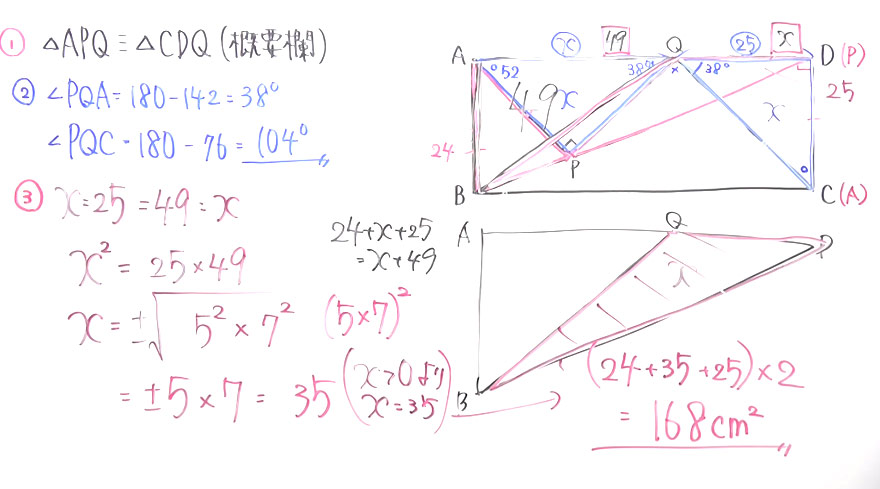 ① △APQ≡△CDQ(概要欄)
② ∠PQA=180-142=38°
∠PQC=180-76=104°
③ x:25=49:x
x²=25×49
x=±√5²×7² (5×7)²
=±5×7=35(x>0より x=35)
24+x+25
=x+49
A x 49 Q 25 x D(P)
52 38° x 38°
49 x x 25
24
P
B C(A)
A Q
x D
B
(24+35+25)×2
=168cm²